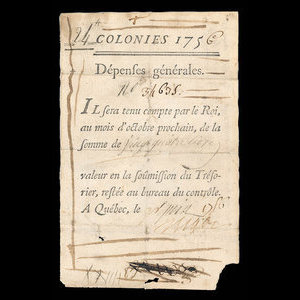 24# COLONIES 1756
Dépenses générales.
No 34635.
IL sera tenu compte par le Roi,
au mois d'octobre prochain, de la
somme de
valeur en la soûmission du Tréso-
rier, restée au bureau du contrôle.
A Québec, le